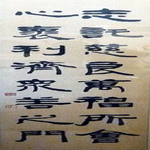 志託慈良萬福所會
心褱利濟眾善之門